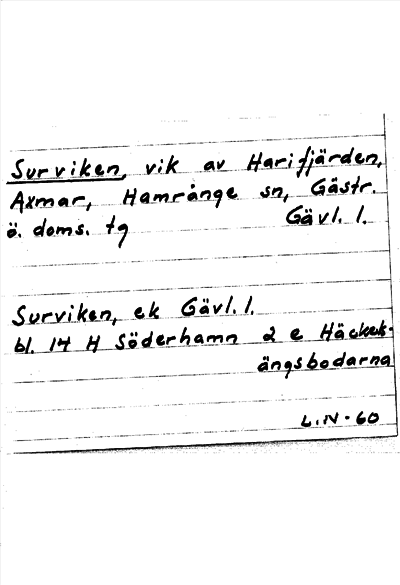 Surviken, vik av Harifjärden,
Axmar, Hamrånge sn, Gästr.
ö. doms. tg Gävl. l.
Surviken, ek Gävl. l.
bl. 14 H Söderhamn 2 e Häckel-
ängsbodarna
L.N-60